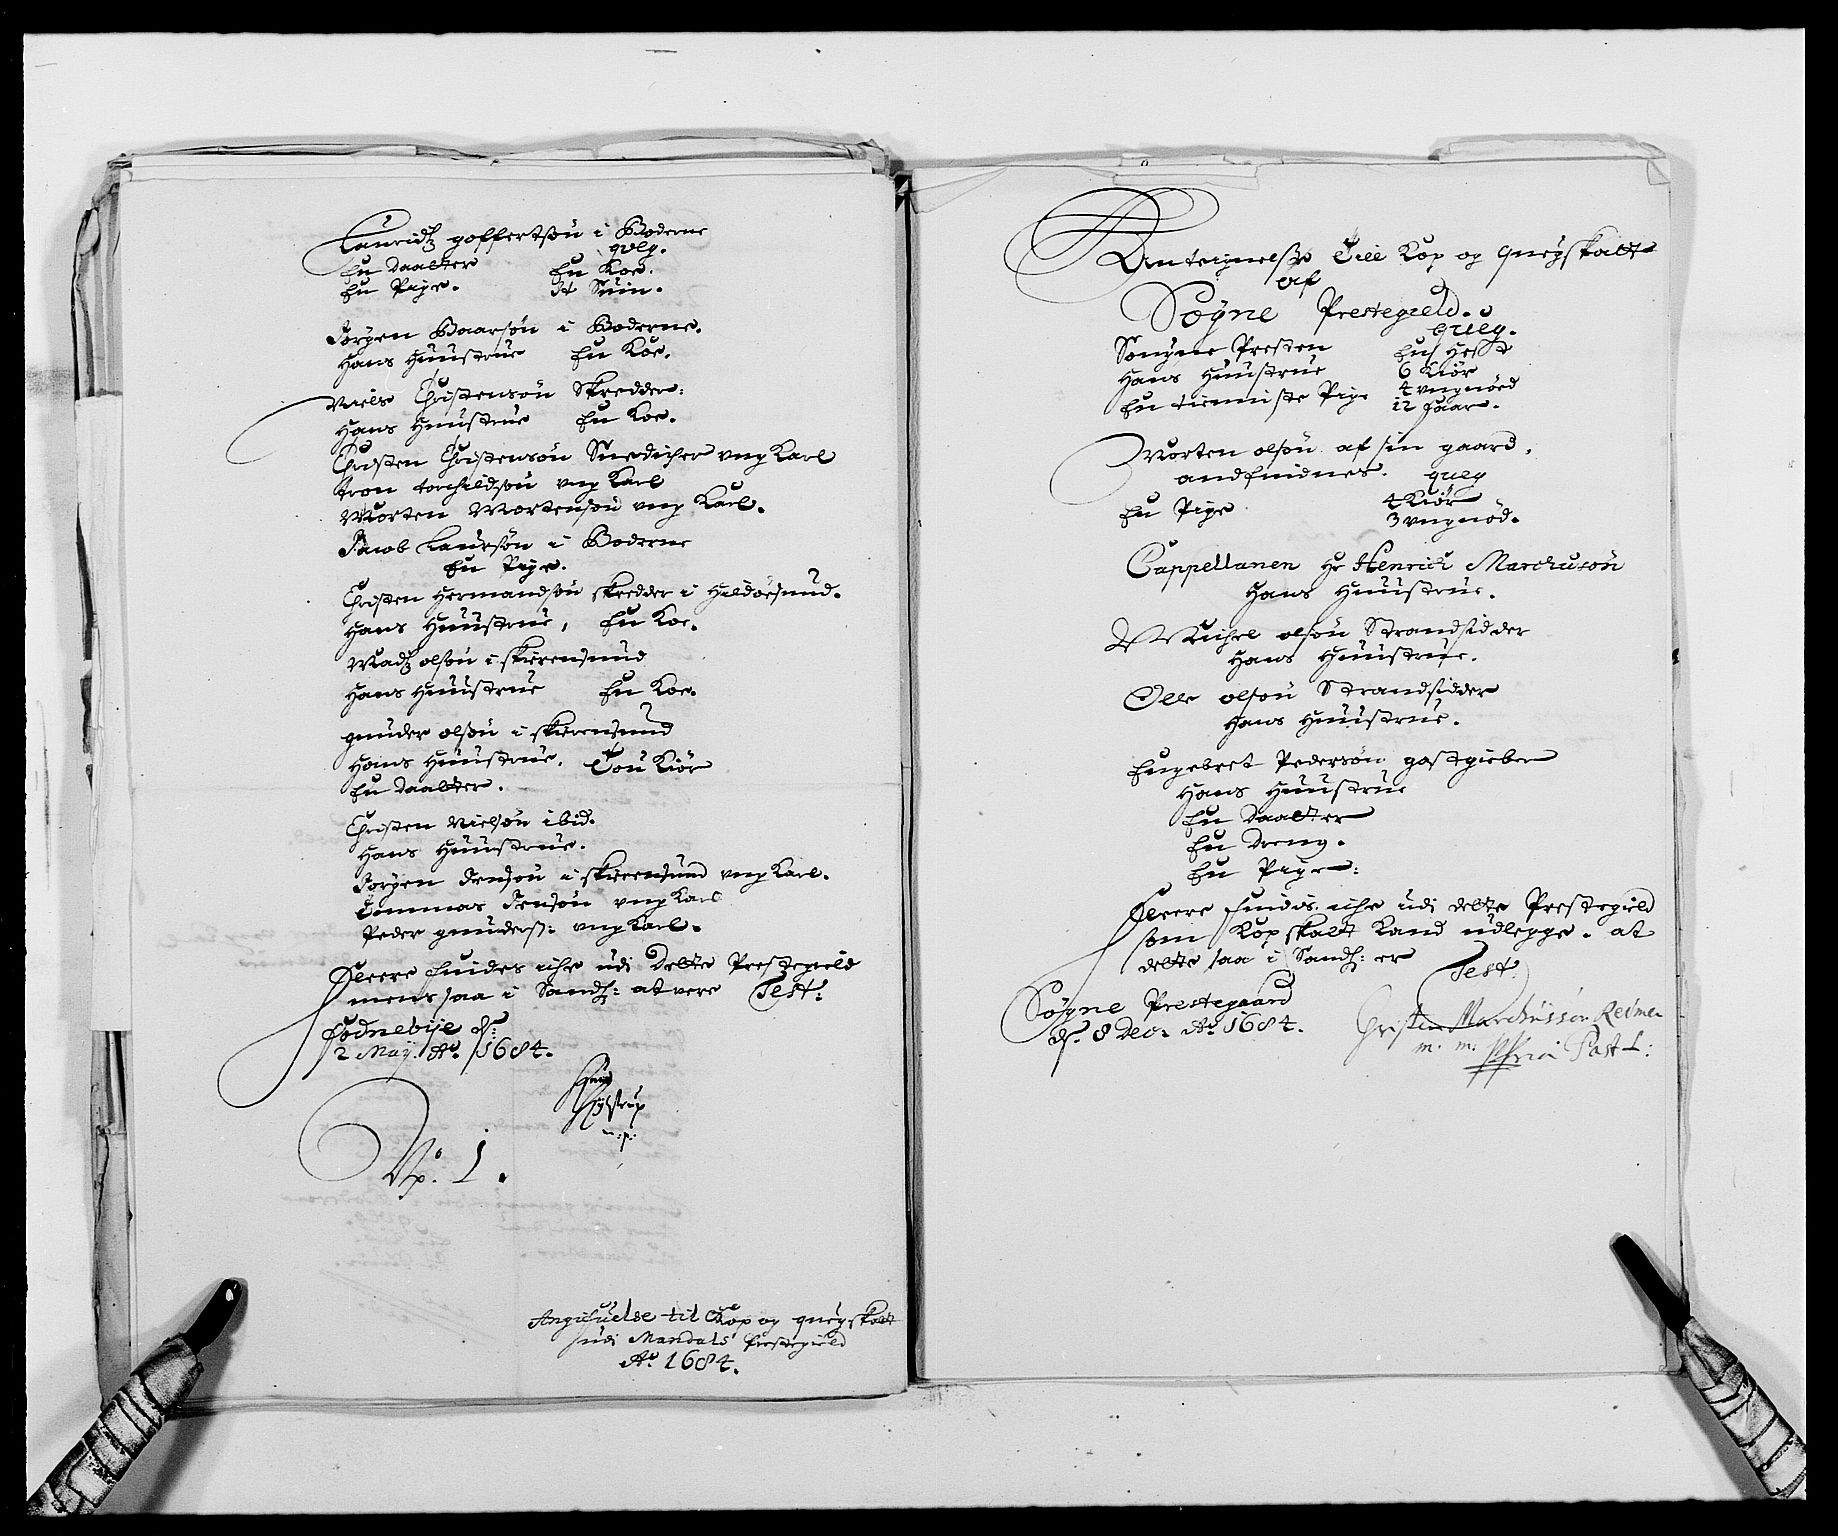 Lauridz goffertsøn i Boderne
qveg.
En Daatter En Koe.
En Pige. It Suin.
Jørgen Baarsøn i Boderne.
Hans Huustrue En Koe.
Niels Christensøn Skredder:
Hans Huustrue En Koe.
Christen Christensøn Snedicher ung Karl
tron torchildsøn ung Karl
Morten Mortensøn ung Karl.
Jacob Laursøn i Boderne
En Pige.
Christen Hermandsøn skredder i Hildøesund.
Hans Huustrue, En Koe.
Madz olsøn i skierensund
Hans Huustrue En Koe.
gunder olsøn i skierensund
Hans Huustrue. Tou Kiør
En Daatter.
Christen Nielsøn ibid.
Hans Huustrue.
Jørgen Jensøn i skierensund ung Karl.
Tommas Jensøn ung Karl
Peder gunders: ung Karl.
Fleere findes iche udi Dette Prestegield
mens saa i Sandh: at vere Test:
Fodnebye d:
2 May. Ao. 1684.
m:p:
No. 1.
Angifuelse til Kop og quegskatt
udi Mandals Prestegield
Ao. 1684.
Antegnelsse Till Kop og quegskatt
af
Søgne Prestegield.
queg.
Sougne Presten En Hest
Hans Huustrue 6 Kiør
En tienniste Pige 4 ungnød
12 Faar.
Morten olsøn af sin gaard
queg
En Pige 4 Kiør
3 ungnød.
Cappellanen Hr Henrich Marchusøn
Hans Huustrue.
Michel olsøn Strandsidder
Hans Huustrue.
Olle olsøn Strandsidder
Hans Huustrue.
Engebret Pedersøn gastgieber
Hans Huustrue
En Daatter
En Dreng.
En Pige:
Fleere findis iche udi dette Prestegield
som Kopskatt Kand udlegge. at
dette saa i Sandh: er
Test:
Søgne Prestegaard
d. 8 Dec. Ao. 1684.
Christen Marchussøn Reimer
m. m. Past L: